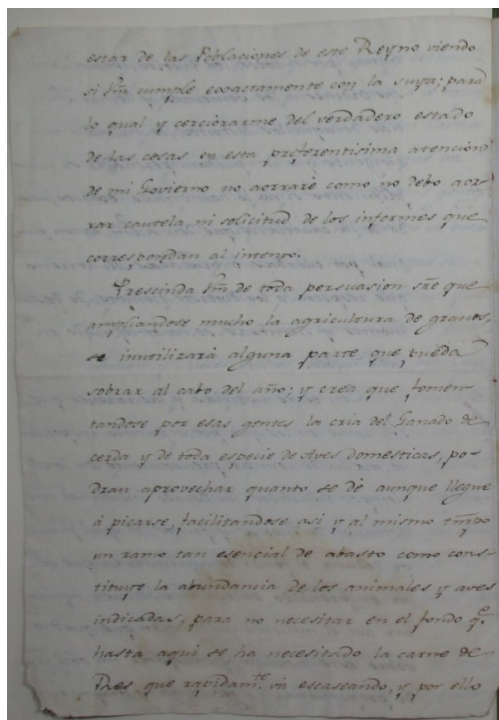 estar de las Poblaciones de este Reyno viendo
si Vm cumple exactamente con la suya; para
lo qual y cerciorarme del verdadero estado
de las cosas en esta preferentisima atencion
de mi Govierno no aorraré como no debo aor-
rar cautela, ni solicitud de los informes que
correspondan al intento.
Prescinda Vm de toda persuasion sre que
ampliandose mucho la agricultura de granos,
se inutilizará alguna parte que pueda
sobrar al cabo del año; y crea que fomen-
tandose por esas gentes la cria del Ganado de
cerda y de toda especie de Aves domesticas, po-
dran aprovechar quanto se dé aunque llegue
á picarse, facilitandose asi y al mismo tmpo
un ramo tan esencial de abasto como cons-
tituye la abundancia de los animales y aves
indicadas, para no necesitar en el fondo qe
hasta aqui se ha necesitado la carne de
Res que rapidamte vá escaseando, y por ello